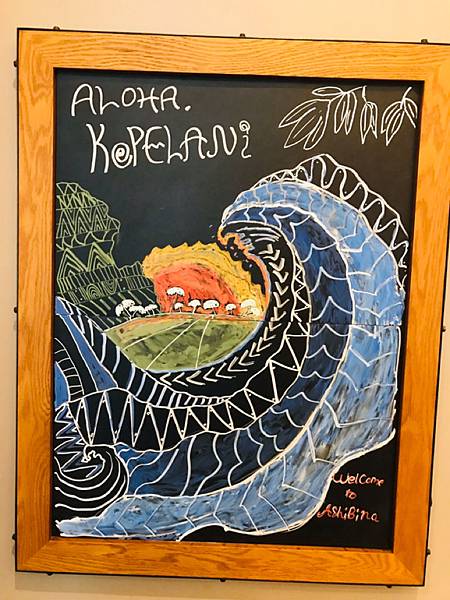 ALOHA.
KePELANi
Welcome
to
AshiBina